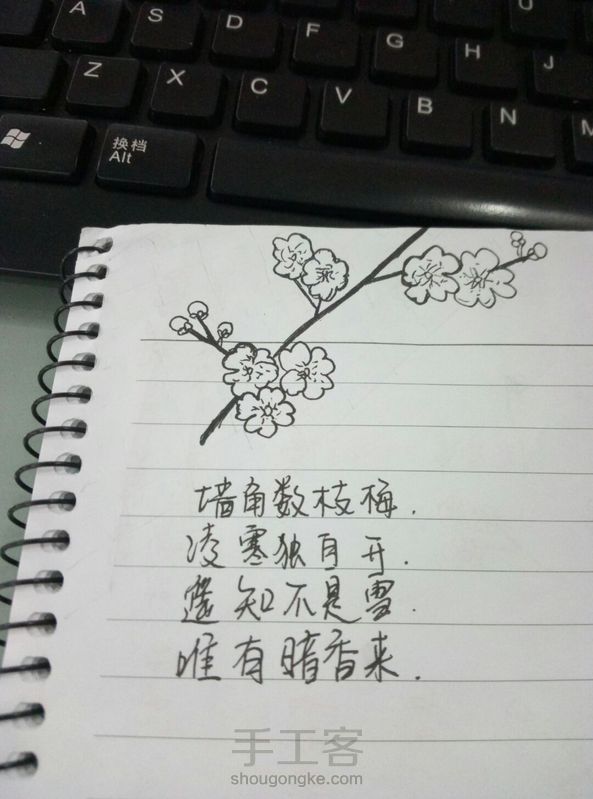 A S D F G H J
Z X C V B N M
换档
Alt
U
墙角数枝梅.
凌寒独自开.
遥知不是雪.
唯有暗香来.
手工客
shougongke.com